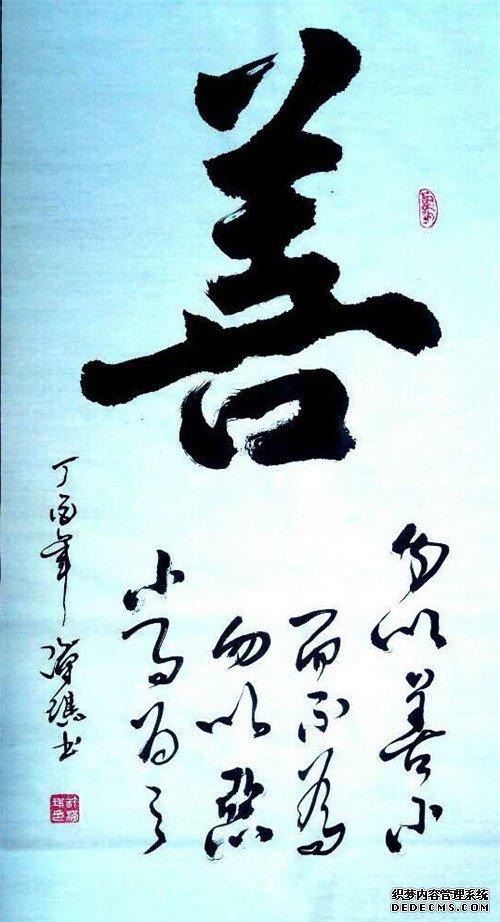 善
勿以善小
而不為
勿以惡
小而为之
丁酉年
书
织梦内容管理系统
DEDECMS.COM